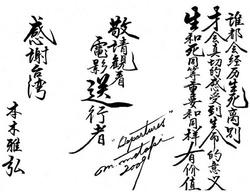 誰都会经历生死离别
才会真切的感受到生命的意义
生和死同等重要和同样有价值
敬請觀看
電影 送行者
"Departures"
m motoki
2009
感謝台湾
本木雅弘